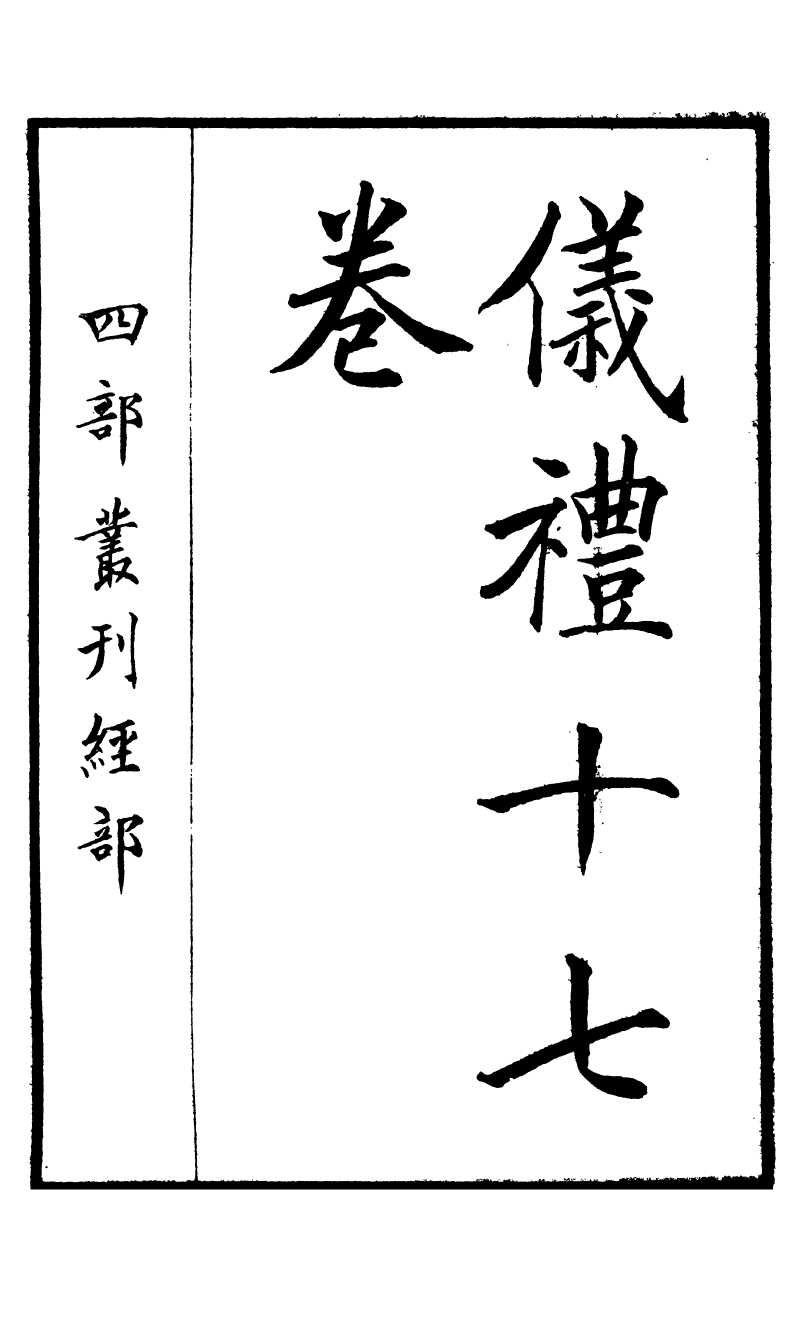 儀禮十七
卷
四部叢刊經部